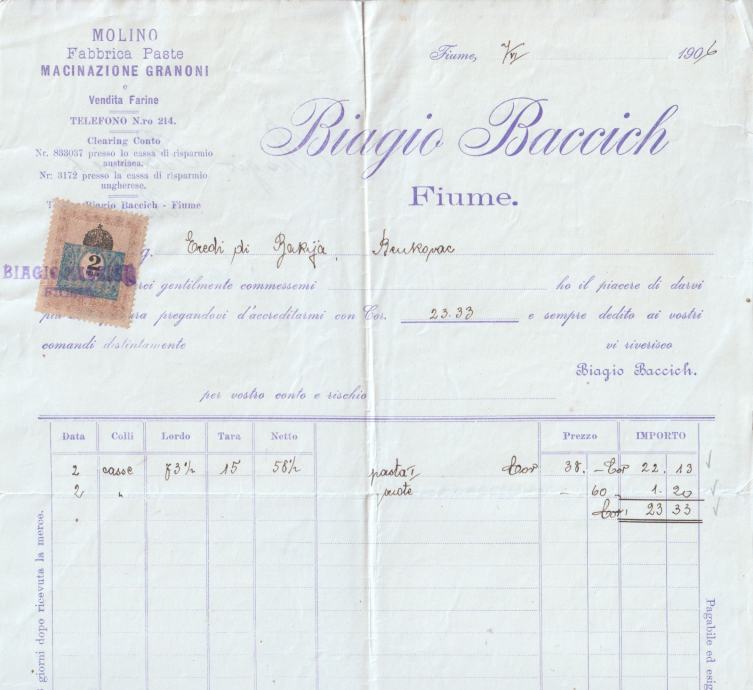 MOLINO
Fabbrica Paste
MACINAZIONE GRANONI
e
Vendita Farine
TELEFONO N.ro 214.
Clearing Conto
Nr. 833037 presso la cassa di risparmio
austriaca.
Nr. 3172 presso la cassa di risparmio
ungherese.
Biagio Baccich - Fiume
Fiume, 7/VI 1906
Biagio Baccich
Fiume.
2
BIAGIO
Eredi di Bakija, Brukovac
gentilmente commessemi ho il piacere di darvi
pregandovi d'accreditarmi con Cor. 23.33 e sempre dedito ai vostri
comandi distintamente
vi riverisco
Biagio Baccich.
per vostro conto e rischio
Data Colli Lordo Tara Netto Prezzo IMPORTO
2 casse 73½ 15 58½ pasta I Cor 38. - Cor 22. 13
2 " vuote - 60 „ 1. 20
Cor. 23 33
giorni dopo ricevuta la merce.
Pagabile ed esig